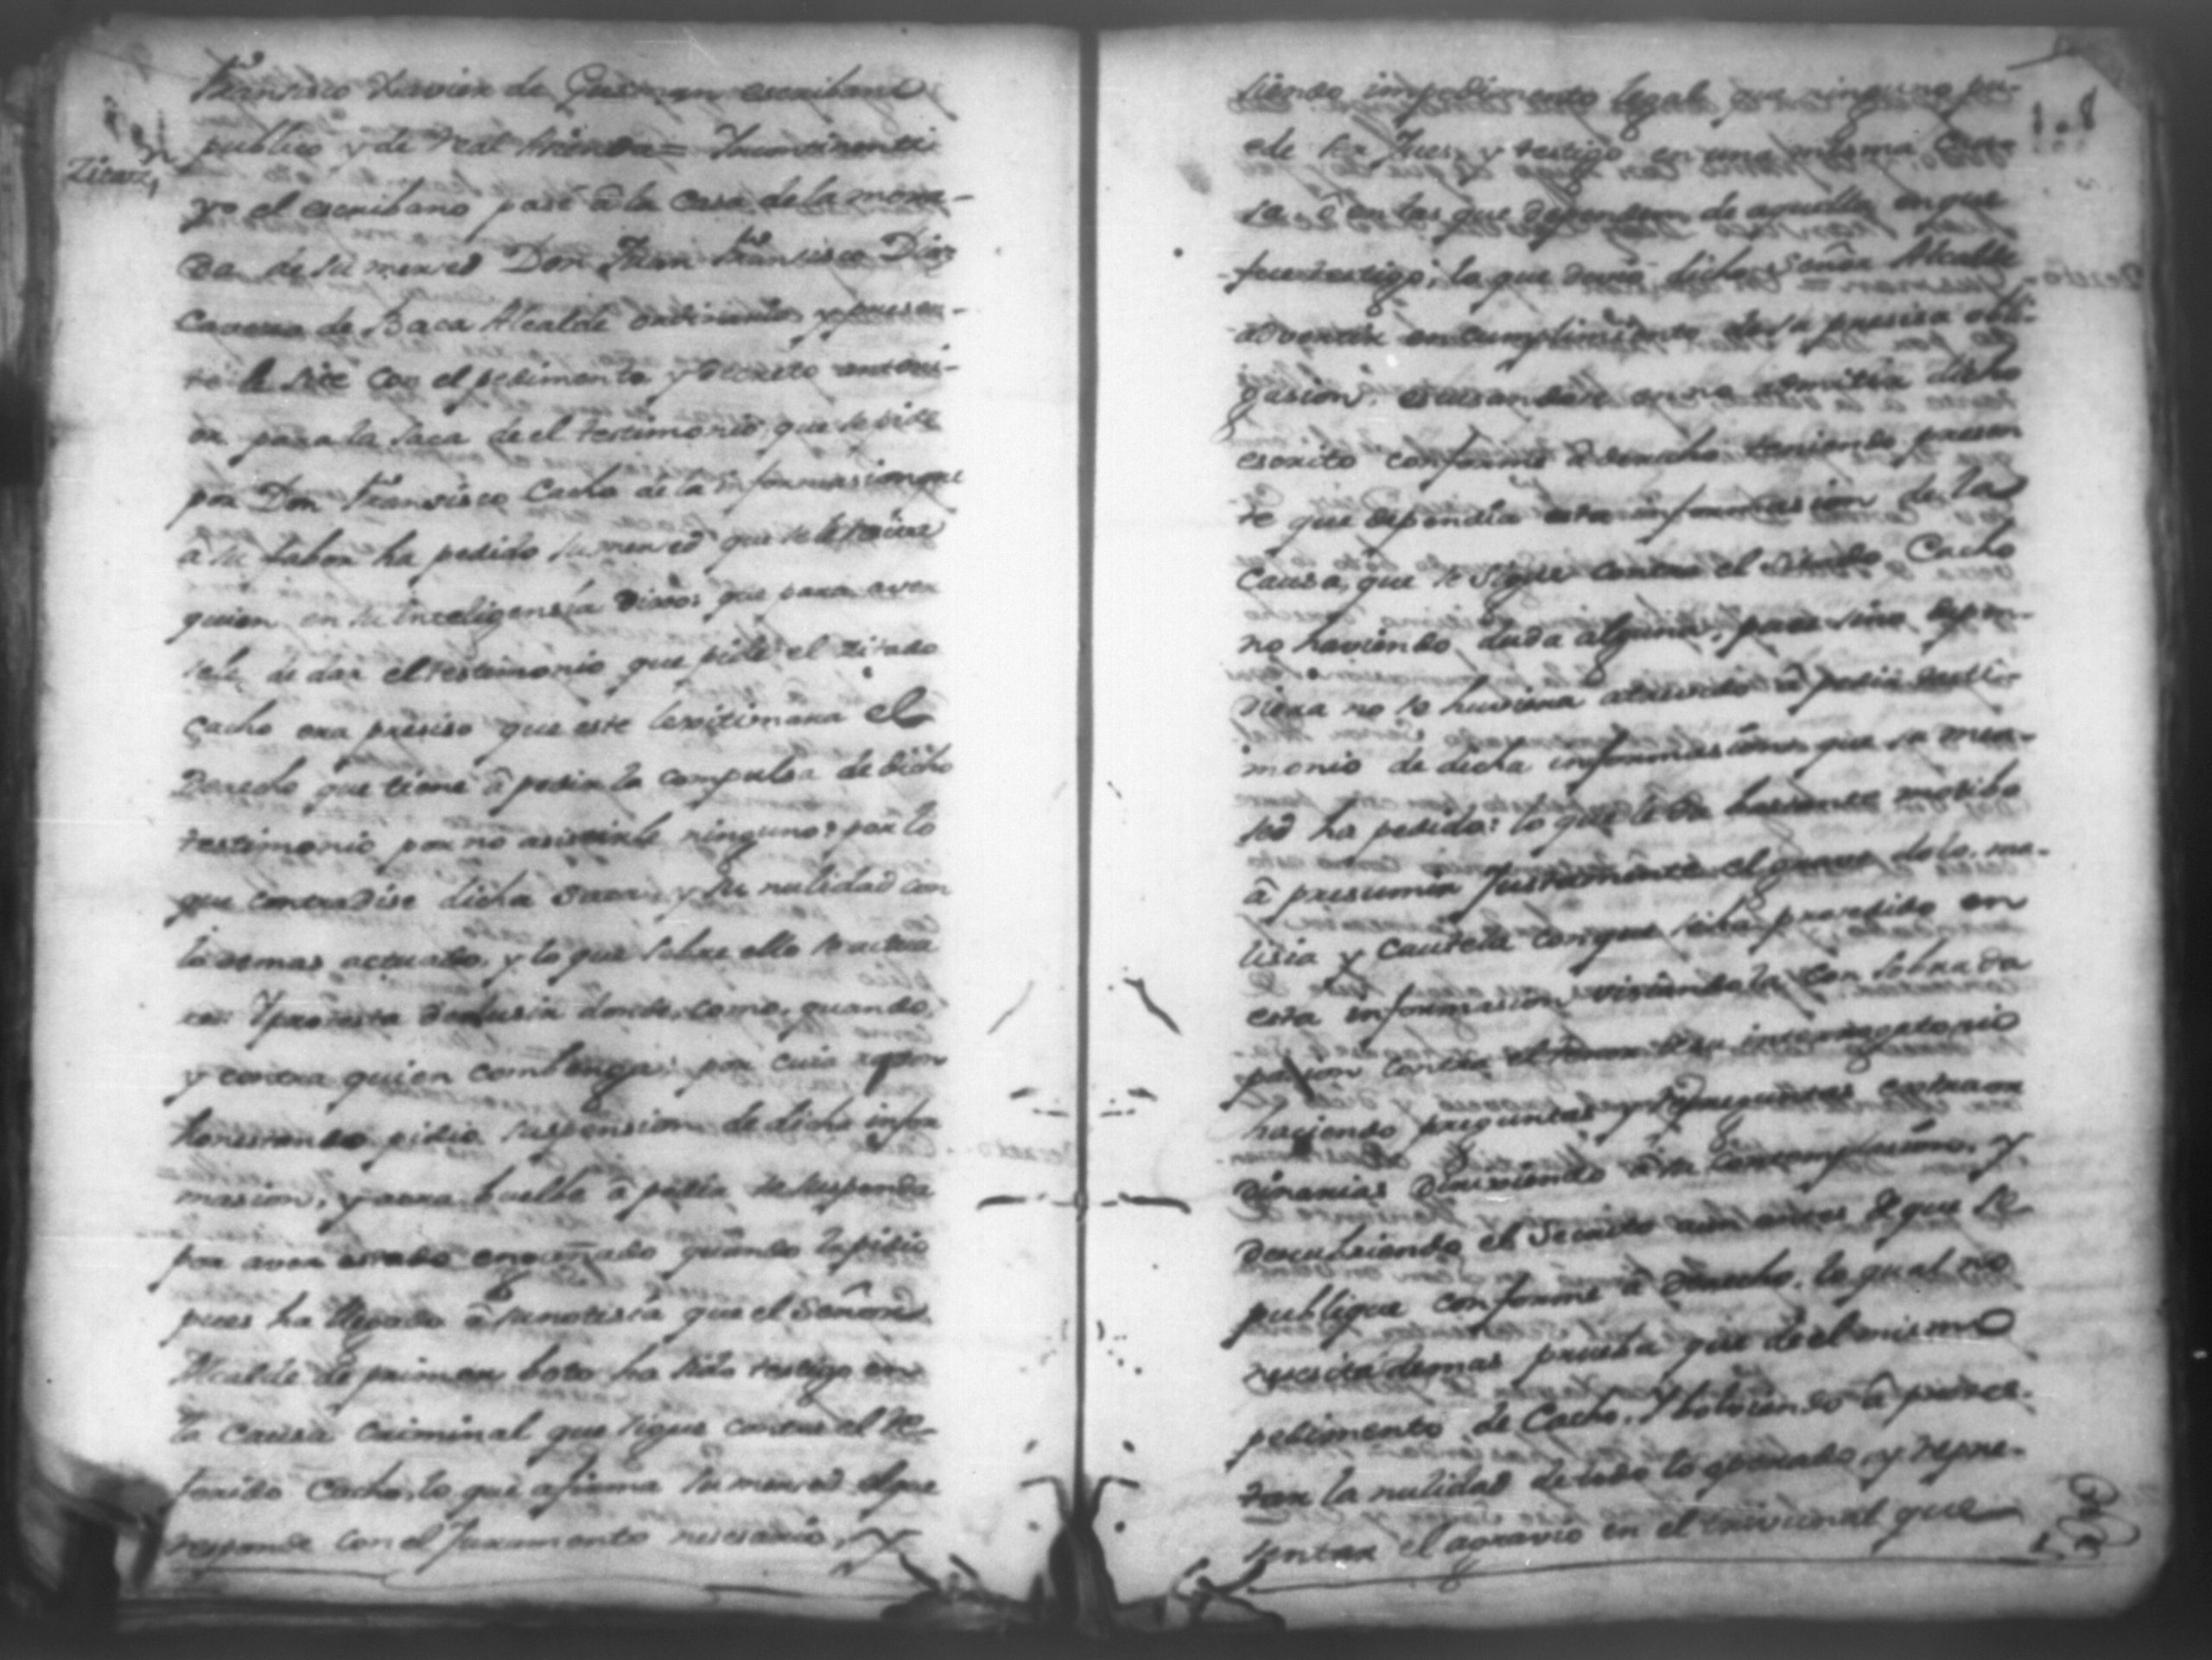 Fransisco Xavier de Gusman escribano
publico y de Real hasienda = Yncontinenti
Zitaz.n
yo el escribano pasé â la casa de la mora-
da de su mersed Don Juan Fransisco Dias
Cavesa de Baca Alcalde ordinario, y presen-
te le sité con el pedimento y decreto anteri-
or para la saca de el testimonio que se pide
por Don Fransisco Cacho de la informasion que
a su fabor ha pedido su mersed que se le resive
quien en su inteligensia dixo: que para aver
sele de dar el testimonio que pide el zitado
Cacho era presiso que este lexitimara el
Derecho que tiene â pedir la compulsa de dicho
testimonio por no asistirle ninguno; por lo
que contradise dicha saca, y su nulidad con
lo demas actuado, y lo que sobre ello se actua
re: Y protesta dedusir donde, como, quando,
y contra quien combenga; por cuia rason
pidio suspension de dicha infor
masion, y aora buelbe â pedir se suspenda
por aver estado engañado quando la pidio
pues ha llegado â su notisia que el Señor
Alcalde de primer boto ha sido testigo en
la causa criminal que sigue contra el re-
ferido Cacho, lo que afirma su mersed el que
responde con el Juramento nesesario, y
siendo impedimento legal que ninguno pu-
ede ser Jues, y testigo en una misma cau-
sa, ô en las que dependen de aquella en que
fue testigo; lo que devio dicho Señor Alcalde
advertir en cumplimiento de su presisa obli-
gasion, escusandose en no admitir dicho
escrito conforme â derecho teniendo presen
te que dependia esta informasion de la
causa que se sigue contra el zitado Cacho
no haviendo duda alguna, pues sino depen-
diera no se huviera atrevido â pedir testi-
monio de dicha informasion que su mer-
sed ha pedido: lo que le da bastante motibo
â presumir Justamente el grave dolo, ma-
lisia y cautela con que se ha prosedido en
esta informasion visiandola con sobrada
pasion contra el tenor de su interrogatorio
haciendo preguntas y repreguntas extraor
dinarias a su contemplasion, y
descubriendo el secreto aun antes de que se
publique conforme â Derecho, lo qual no
nesesita demas prueba que de el mismo
pedimento de Cacho. Y bolviendo â protes-
tar la nulidad de todo lo operado, y repre-
sentar el agravio en el tribunal que